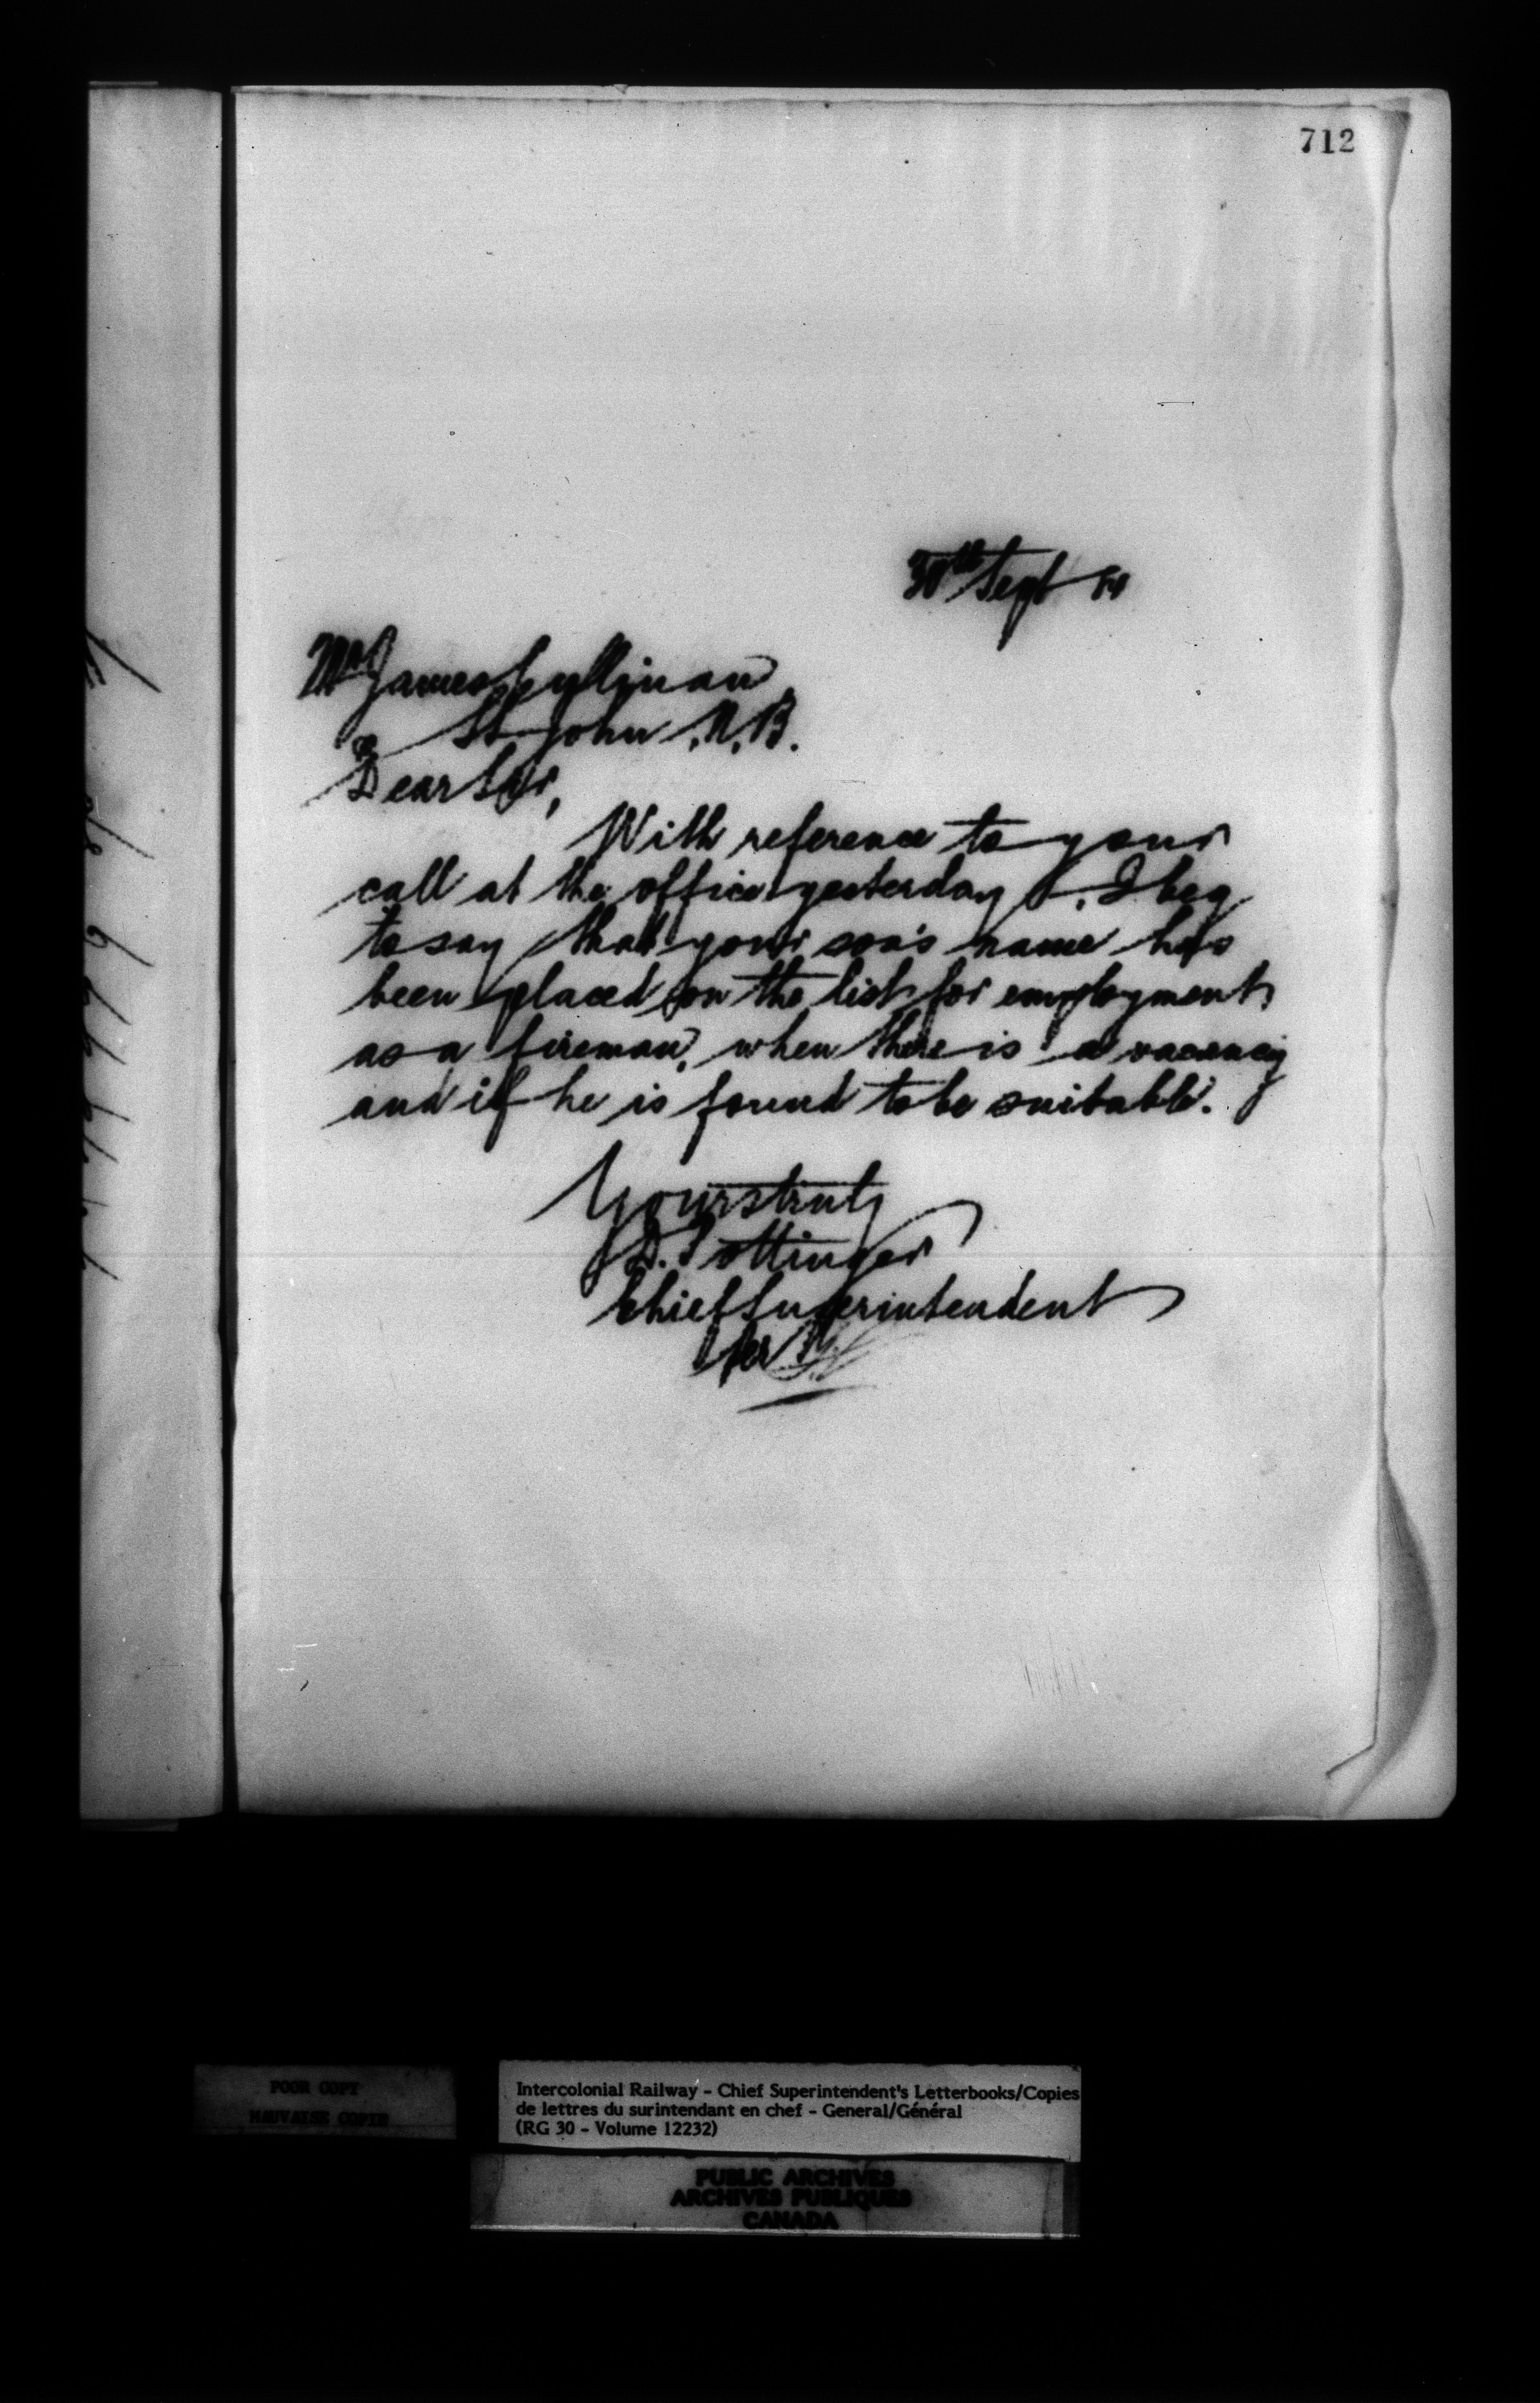 712
30th Sept 84
Mr James Cullinan
St. John, N.B.
Dear Sir,
With reference to your
call at the office yesterday, I beg
to say that your son's name has
been placed on the list for employment
as a fireman, when there is a vacancy
and if he is found to be suitable.
Yours truly
D. Pottinger
Chief Superintendent
Per
POOR COPY
MAUVAISE COPIE
Intercolonial Railway - Chief Superintendent's Letterbooks/Copies
de lettres du surintendant en chef - General/Général
(RG 30 - Volume 12232)
PUBLIC ARCHIVES
ARCHIVES PUBLIQUES
CANADA